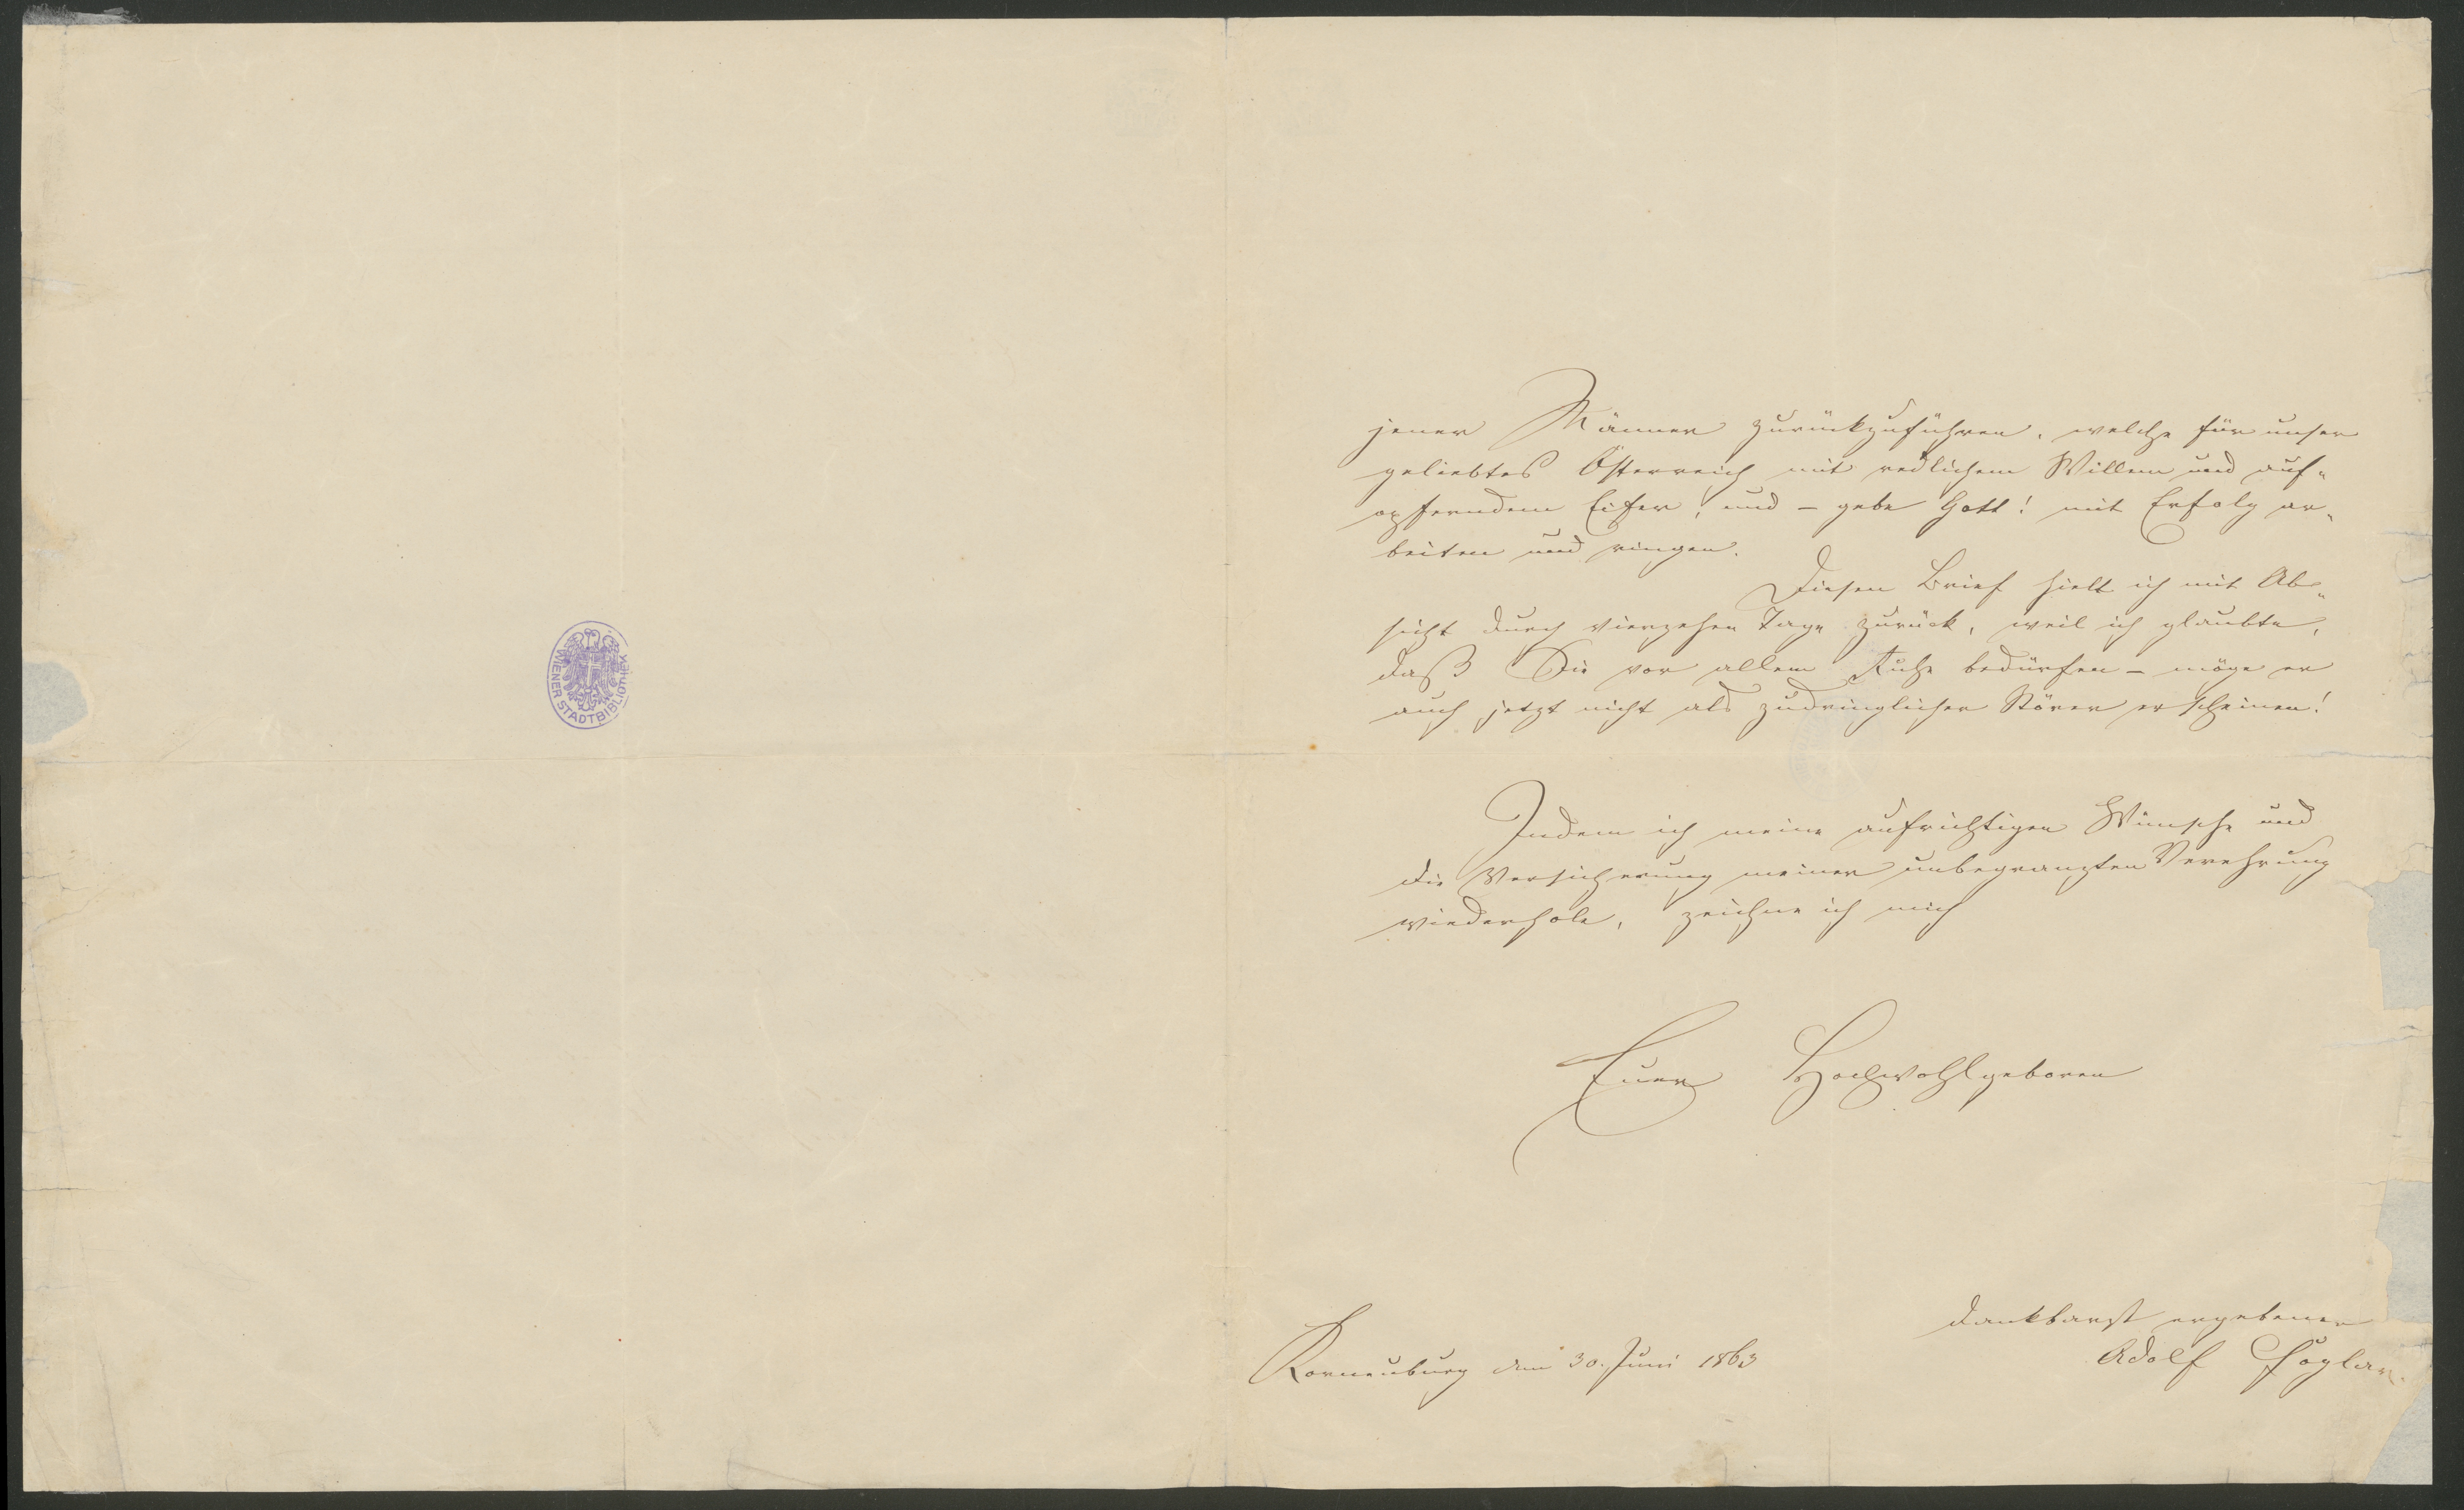 WIENER STADTBIBLIOTHEK
jener Männer zurückzuführen, welche für unser
geliebtes Österreich mit redlichem Willen und auf„
opferndem Eifer, und – gebe Gott! mit Erfolg ar„
beiten und ringen.
Diesen Brief hielt ich mit Ab„
sicht durch vierzehen Tage zurück, weil ich glaubte,
daß Sie vor allem Ruhe bedürfen – möge er
auch jetzt nicht als zudringlicher Störer erscheinen!
Indem ich meine aufrichtigen Wünsche und
die Versicherung meiner unbegränzten Verehrung
wiederhole, zeichne ich mich
Euer Hochwohlgeboren
dankbarst ergebener
Adolf Foglar.
Korneuburg den 30. Juni 1863